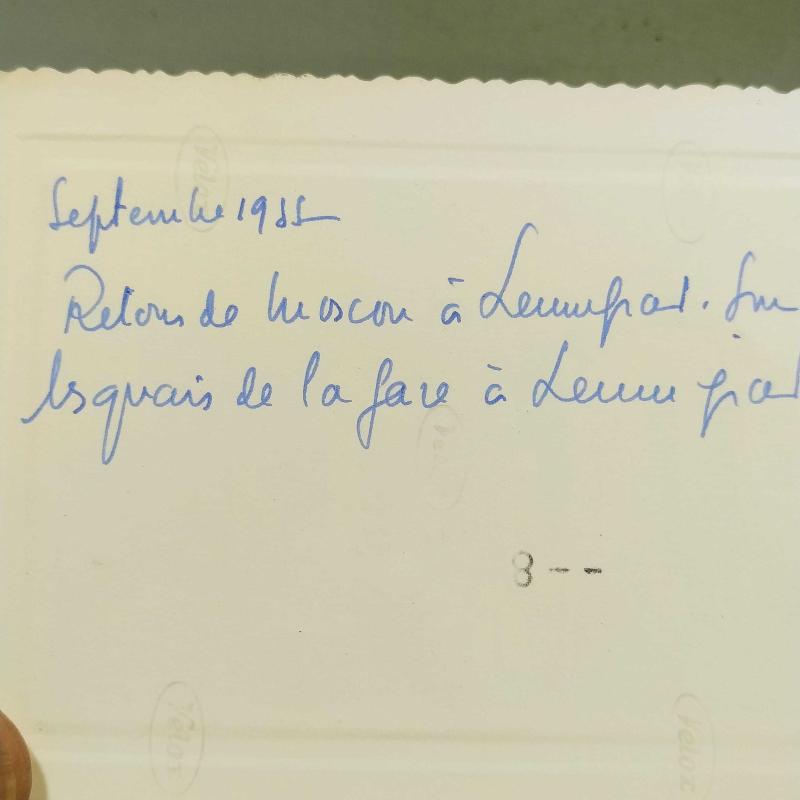 Septembre 1955
Retour de Moscou à Leningrad. Sur
les quais de la gare à Leningrad
8--
Velox
Velox
Velox